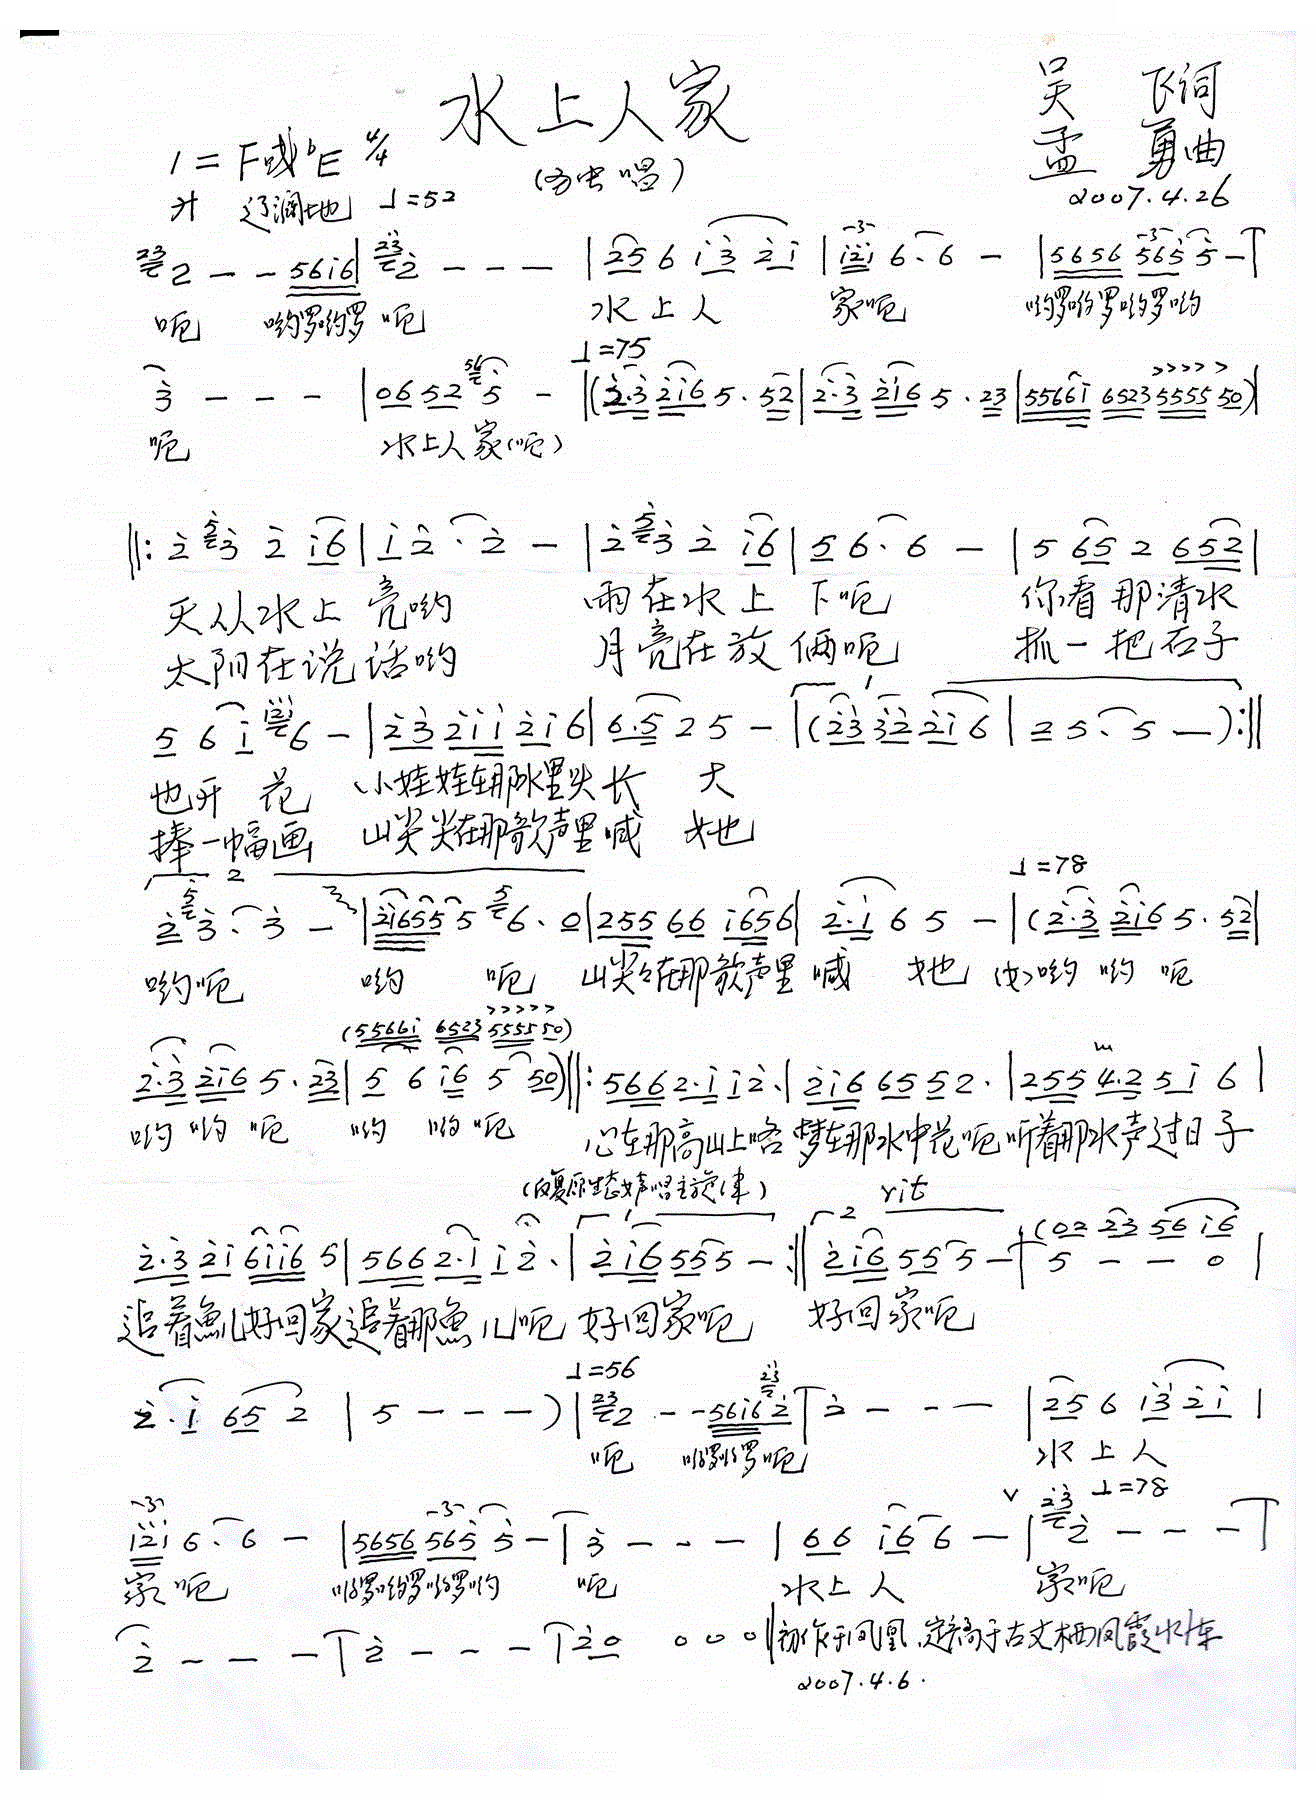 水上人家
吴 飞词
孟 勇曲
1=F或bE 4/4
(方虫唱)
2007.4.26
廾 辽阔地 ⊥=52
2 - - 5616 | 2 - - - | 256 13 21 | 121 6. 6 - | 5656 565 5 -
呃 哟罗哟罗 呃 水上人 家呃 哟罗哟罗哟罗哟
⊥=75
3 - - - | 0652 5 - | (2.3 216 5. 52 | 2.3 216 5. 23 | 55661 6523 5555 50) |
呃 水上人家(呃)
||: 2 3 2 16 | 1 2. 2 - | 2 3 2 16 | 5 6. 6 - | 5 65 2 652 |
天从水上亮哟 雨在水上下呃 你看那清水
太阳在说话哟 月亮在放俩呃 抓一把石子
5 6 1 6 - | 23 211 216 | 6.5 2 5 - | (23 32 216 | 2 5. 5 -) :||
也开花 小娃娃在那水里头长大
捧一幅画 山尖尖在那歌声里喊她
2
⊥=78
2 3. 3 - | 216555 6. 0 | 255 66 1656 | 2.1 6 5 - | (2.3 216 5. 52 |
哟呃 哟 呃 山尖尖在那歌声里喊她 (女)哟哟呃
(55661 6523 5555 50)
2.3 216 5. 23 | 5 6 16 5 50) ||: 566 2.1 12. | 216 6552. | 255 4.2 51 6 |
哟哟呃 哟哟呃 心在那高山上咯 梦在那水中花呃 听着那水声过日子
(反复原生态女声唱主旋律) rit
2.3 21 6116 5 | 566 2.1 12. | 216 555 - :|| 216 55 5 - | (02 23 56 16
5 - - 0 |
追着魚儿好回家 追着那魚儿呃 好回家呃 好回家呃
⊥=56
2.1 65 2 | 5 - - -) | 2 - - 5616 2 | 2 - - - | 256 13 21 |
呃 哟罗哟罗呃 水上人
⊥=78
121 6. 6 - | 5656 565 5 - | 3 - - - | 66 16 6 - | 2 - - -
家呃 哟罗哟罗哟罗哟 呃 水上人 家呃
2 - - - | 2 - - - | 20 0 0 0 || 初作于凤凰,定稿于古丈栖凤霞水库
2007.4.6.